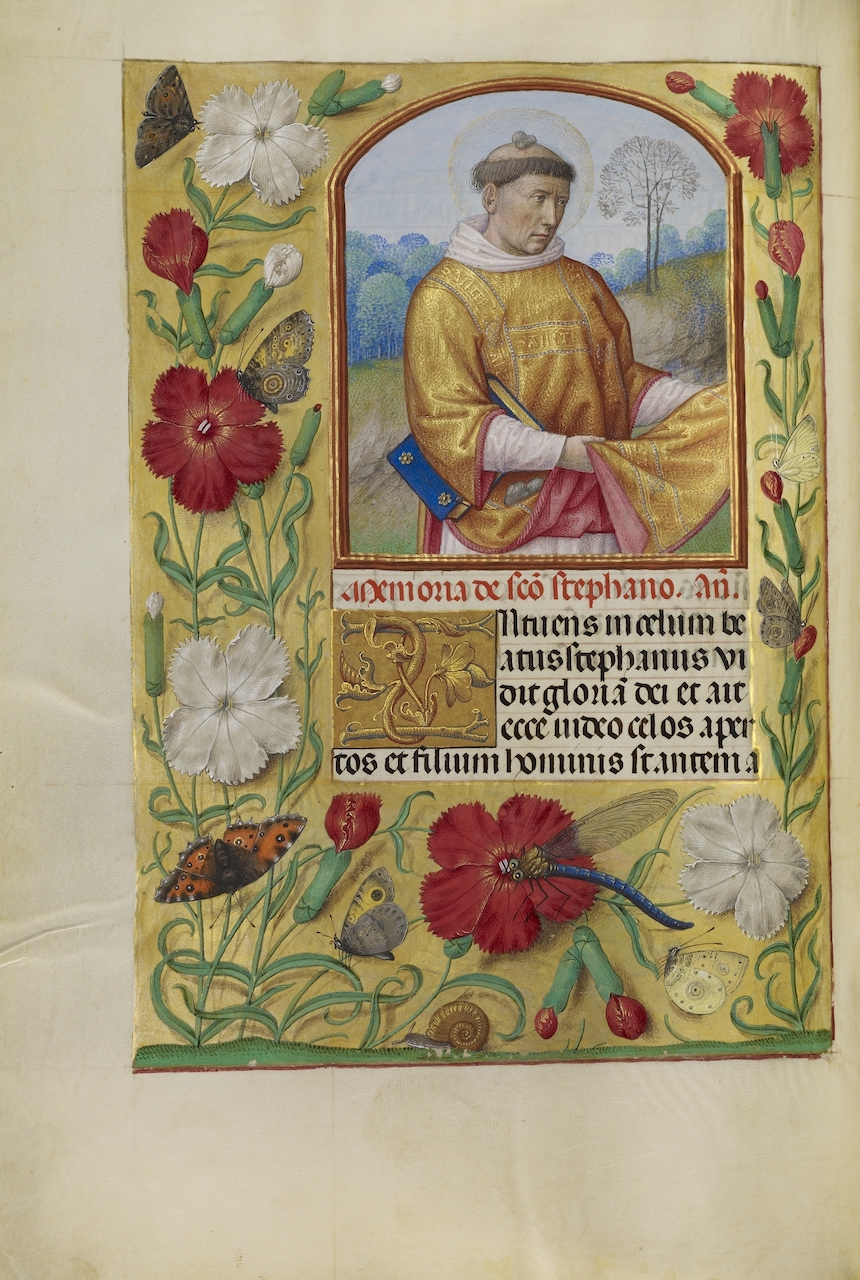 Memoria de scō stephano. An̄.
Intuens in celum be
atus stephanus vi
dit gloriā dei et ait
ecce uideo celos aper
tos et filium hominis stantem a